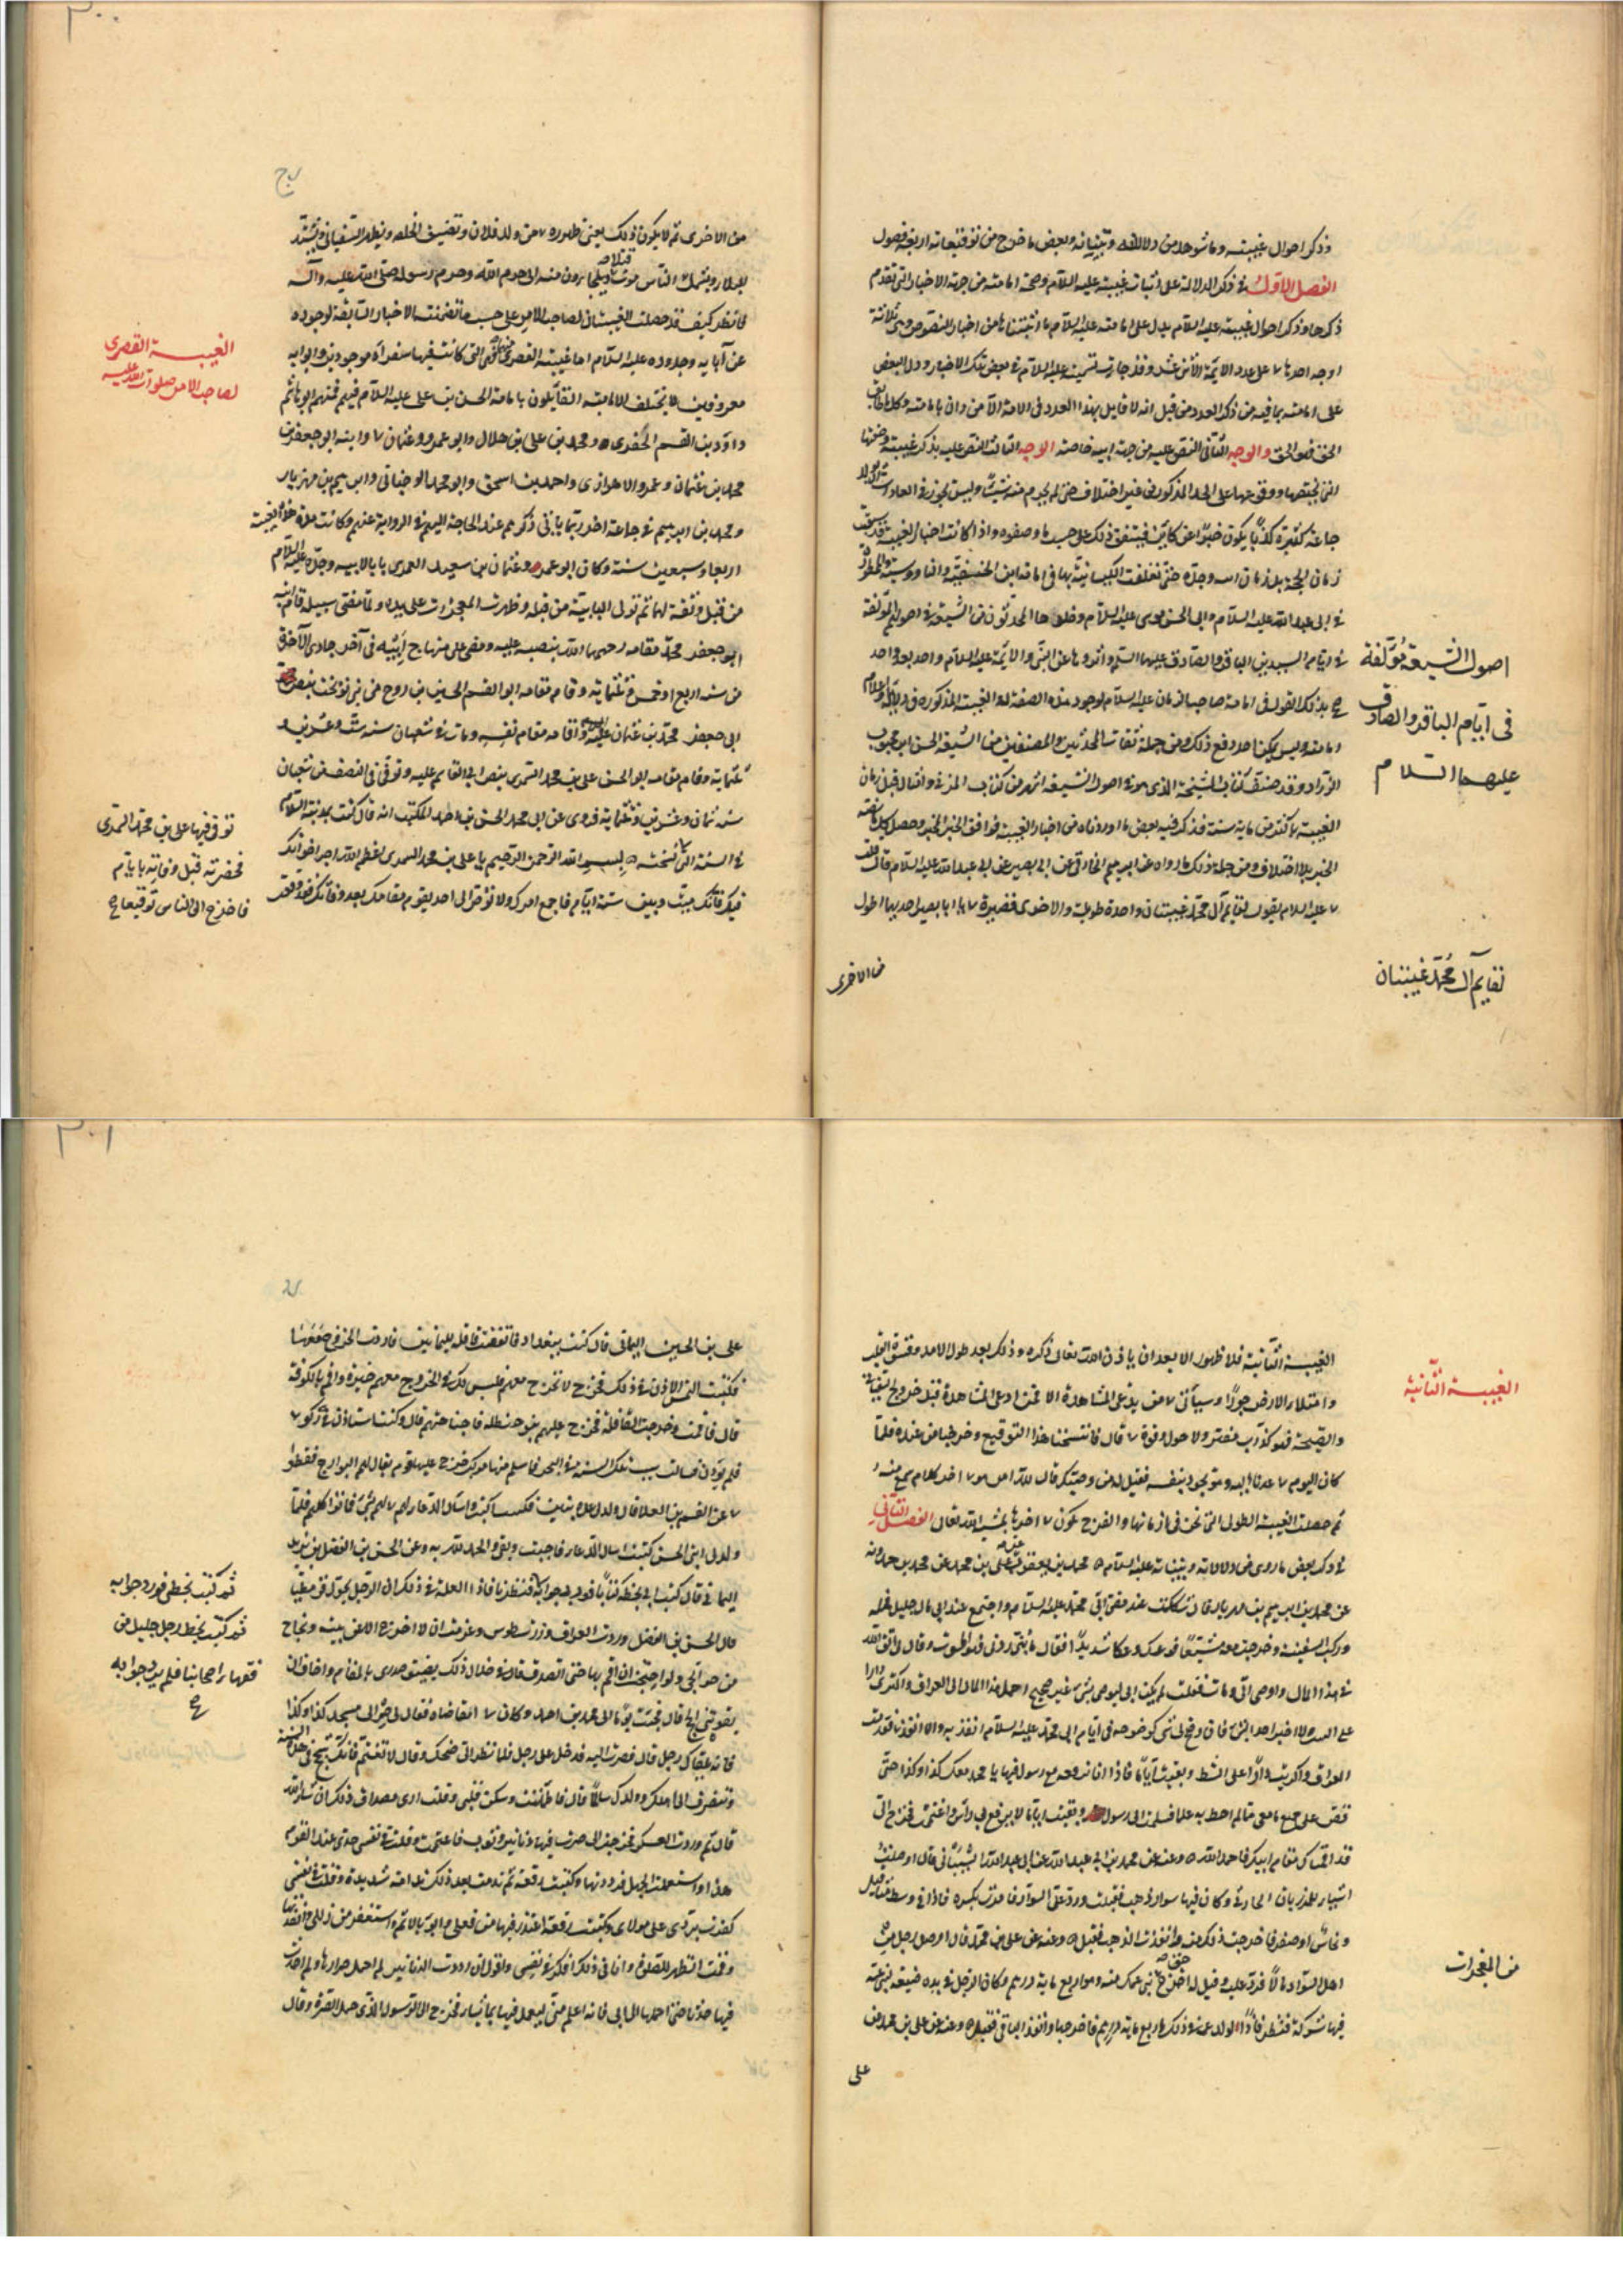 وذكر احوال غيبته وما شوهد من دلالاته وبيناته وبعض ما خرج من توقيعاته اربعة فصول
الفصل الاول في ذكر الدلالة على اثبات غيبته عليه السلام وصحة امامته من جهة الاخبار التي تقدم
ذكرها وذكر احوال غيبته عليه السلام يدل على امامته عليه السلام ما اثبتناه من اخبار النصوص وهي ثلاثة
اوجه احدها ٧ على عدد الايمة الاثنى عشر وقد جاءت تسميته عليه السلام في بعض تلك الاخبار ودل البعض
على امامته بما فيه من ذكر العدد من قبل انه لا قايل بهذا العدد في الامة الا من دان بامامته وكل ما طابق
الحق فهو الحق والوجه الثاني النص عليه من جهة ابيه خاصته الوجه الثالث النص عليه بذكر غيبته وصفتها
التي يختصها ووقوعها على الحد المذكور من غير اختلاف حتى لم يخرم منه شيئا وليس يجوز في العادات ان تولد
جماعة كثيرة كذبا يكون خبرا عن كاين فيتفق ذلك على حسب ما وصفوه واذا كانت اخبار الغيبة قد سبقت
زمان الحجة بل زمان ابيه وجده حتى تعلقت الكيسانية بها في امامة ابن الحنفية والناووسية والممطورة
في ابي عبد الله عليه السلام وابي الحسن موسى عليه السلام وخلدها المحدثون من الشيعة في اصولهم المؤلفة
في ايام السيدين الباقر والصادق عليهما السلم واثروها عن النبي والايمة عليه السلام واحد بعد واحد
صح بذلك القول في امامة صاحب الزمان عليه السلام لوجود هذه الصفة له والغيبة المذكورة في دلايله واعلام
امامته وليس يمكن احد دفع ذلك ومن جملة ثقات المحدثين والمصنفين من الشيعة الحسن ابن محبوب
الزراد وقد صنف كتاب المشيخة الذي هو في اصول الشيعة اشهر من كتاب المزني وامثاله قبل زمان
الغيبة باكثر من ماية سنة فذكر فيه بعض ما اوردناه من اخبار الغيبة فوافق الخبر الخبر وحصل كلما تضمنه
الخبر بلا اختلاف ومن جملة ذلك ما رواه عن ابرهيم الخارقي عن ابي بصير عن ابي عبد الله عليه السلام قال قلت
٧ عليه السلام يقول لقايم آل محمد غيبتان واحدة طويلة والاخرى قصيرة ٧ يا ابا بصير احديهما اطول
من الاخرى
اصول الشيعة مؤلفة
في ايام الباقر والصادق
عليهما السلام
لقايم آل محمد غيبتان
٣٠٠
من الاخرى ثم لا يكون ذلك يعني ظهوره ٧ من ولد فلان وتضيق الحلقة ويظهر السفياني ويشتد
البلاء ويشمل الناس موت وقتل ويلجأون منه الى حرم الله وحرم رسوله صلى الله عليه وآله
فانظر كيف قد حصلت الغيبتان لصاحب الامر على حسب ما تضمنته الاخبار السابقة لوجوده
عن آبايه وجدوده عليه السلام اما غيبته القصرى منهما فهي التي كانت فيها سفراه موجودين وابوابه
معروفين لا يختلف الامامية القائلون بامامة الحسن بن علي عليه السلام فيهم فمنهم ابو هاشم
داود بن القسم الجعفري ومحمد بن علي بن هلال وابو عمرو وعثمان ٧ وابنه ابو جعفر
محمد بن عثمان وعمرو الاهوازي واحمد بن اسحق وابو محمد الوجناني وابرهيم بن مهزيار
ومحمد بن ابرهيم في جماعة اخر ربما ياتي ذكرهم عند الحاجة اليهم في الرواية عنهم وكانت مدة هذه الغيبة
اربعا وسبعين سنة وكان ابو عمرو عثمان بن سعيد العمري بابا لابيه وجده عليه السلام
من قبل وثقة لهما ثم تولى البابية من قبله وظهرت المعجزات على يده ولما مضى لسبيله قام ابنه
ابو جعفر محمد مقامه رحمهما الله بنصه عليه ومضى على منهاج ابيه في آخر جمادى الآخرة
من سنه اربع او خمس وثلثماية وقام مقامه ابو القسم الحسين بن روح من بني نوبخت بنص
ابي جعفر محمد بن عثمان عليه واقامه مقام نفسه ومات في شعبان سنه ست وعشرين و
ثلثماية وقام مقامه ابو الحسن علي بن محمد السمري بنص ابي القاسم عليه وتوفى في النصف من شعبان
سنه ثمان وعشرين وثلثماية فروى عن ابي محمد الحسن بن احمد المكتب انه قال كنت بمدينة السلام
في السنة التي بسم الله الرحمن الرحيم يا علي بن محمد السمري اعظم الله اجر اخوانك
فيك فانك ميت وبين ستة ايام فاجمع امرك ولا توص الى احد يقوم مقامك بعد وفاتك فقد وقعت
الغيبة القصرى
لصاحب الامر صلوات الله عليه
توفى فيها علي بن محمد السمري
فحضرته قبل وفاته بايام
فاخرج الى الناس توقيعا ح
الغيبة الثانية فلا ظهور الا بعد ان ياذن الله تعالى ذكره وذلك بعد طول الامد وقسوة القلب
وامتلاء الارض جورا وسيأتي ٧ من يدعي المشاهدة الا فمن ادعى المشاهدة قبل خروج السفياني
والصيحة فهو كذاب مفتر ولا حول وقوة ٧ قال فانتسخنا هذا التوقيع وخرجنا من عنده فلما
كان اليوم ٧ عدنا اليه وهو يجود بنفسه فقيل له من وصيك قال لله امر هو ٧ اخر كلام سمع منه و
ثم حصلت الغيبة الطولى التي نحن في ازمانها والفرج يكون ٧ اخرها بمشية الله تعالى الفصل الثاني
في ذكر بعض ما روي من دلالاته وبيناته عليه السلام محمد بن يعقوب عن علي بن محمد عن محمد بن حمدويه
عن محمد بن ابرهيم بن مهزيار قال شككت عند مضي ابي محمد عليه السلام واجتمع عند ابي مال جليل فحمله
وركب السفينة وخرجت معه مشيعا فوعك وعكا شديدا فقال يا بني ردني فهو الموت وقال واتق الله
في هذا المال واوصى الي ومات فقلت لم يكن ابي ليوصي بشيء غير صحيح احمل هذا المال الى العراق واكتري دارا
على الشط ولا اخبر احدا بشيء فان وضح لي شيء كوضوحه في ايام ابي محمد عليه السلام انفذ به والا انفذ فقدمت
العراق واكتريت دارا على الشط وبقيت اياما فاذا انا برقعه مع رسول فيها يا محمد معك كذا وكذا حتى
قص علي جميع ما معي مما لم احط به علما فسلمت الى رسول وبقيت اياما لا يرفع لي راس واغتممت فخرج الي
قد اقمناك مقام ابيك فاحمد الله وعنه عن محمد بن ابي عبد الله عن ابي عبد الله الشيباني قال اوصلت
اشياء للمرزباني الحارثي وكان فيها سوار ذهب فقبلت ورد علي السوار فامرت بكسره فاذا في وسطه مثاقيل
ونحاس او صفر فاخرجت ذلك منه وانفذت الذهب فقبل وعنه عن علي بن محمد قال اوصل رجل من
اهل السواد مالا فرد عليه وقيل له اخرج حق بني عمك منه وهو اربع ماية درهم وكان الرجل في يده ضيعة لبني عمه
فيها شركة فنظر فاذا لولد عمه في ذلك اربع ماية درهم فاخرجها وانفذ الباقي فقبل وعنه عن علي بن محمد عن
علي
الغيبة الثانية
من المعجزات
٣٠١
علي بن الحسين اليماني قال كنت ببغداد فاتفقت قافله لليمانيين فاردت الخروج معها
فكتبت التمس الاذن في ذلك فخرج لا تخرج معهم فليس لك في الخروج معهم خيرة واقم بالكوفة
قال فاقمت وخرجت القافلة فخرج عليهم بنو حنظلة فاجتاحتهم قال وكنت استاذن في ركوب ٧
فلم يؤذن فسالت عن تلك السنة في البحر فما سلم منها مركب خرج عليها قوم يقال لهم البوارج فقطعوا
٧ عن القسم بن العلا قال ولد لي عدة بنين فكنت اكتب واسأل الدعاء لهم ٧ لهم بشيء فماتوا كلهم فلما
ولد لي ابني الحسن كتبت اسال الدعاء فاجبت وبقي والحمد لله به وعن الحسن بن الفضل بن يزيد
اليماني قال كتب ابي بخطه كتابا فورد جوابه فنظرنا فاذا العلة في ذلك ان الرجل تحول قرمطيا
قال الحسن بن الفضل وردت العراق وزرت طوس وعزمت ان لا اخرج الا عن بينه ونجاح
من حوائجي ولو احتجت ان اقيم بها حتى اتصدق قال وفي خلال ذلك يضيق صدري بالمقام واخاف ان
يفوتني الحج قال فجئت يوما الى محمد بن احمد وكان ٧ اتقاضاه فقال لي صر الى مسجد كذا وكذا
فانه يلقاك رجل قال فصرت اليه فدخل علي رجل فلما نظر الي ضحك وقال لا تغتم فانك ستحج في هذه السنة
وتنصرف الى اهلك وولدك سالما قال فاطمأننت وسكن قلبي وقلت ارى مصداق ذلك ان شاء الله
قال ثم وردت العسكر فخرجت الى صرت فيها دنانير وثوب فاغتممت وقلت في نفسي جدي عند القوم
هذا واستعملت الجهل فرددتها وكتبت رقعة ثم ندمت بعد ذلك ندامة شديدة وقلت في نفسي
كفرت بردي على مولاي وكتبت رقعة اعتذر فيها من فعلي وابوء بالاثم واستغفر من زللي وانفذتها
وقمت اتطهر للصلوة وانا في ذلك افكر في نفسي واقول ان ردت الدنانير لم احلل صرارها ولم احدث
فيها حدثا حتى احملها الى ابي فانه اعلم مني ليعمل فيها بما شاء فخرج الى الرسول الذي حمل الصرة وقال
ثم كتبت بخطي فورد جوابه
ثم كتب بخط رجل جليل من
فقهاء اصحابنا فلم يرد جوابه
ح